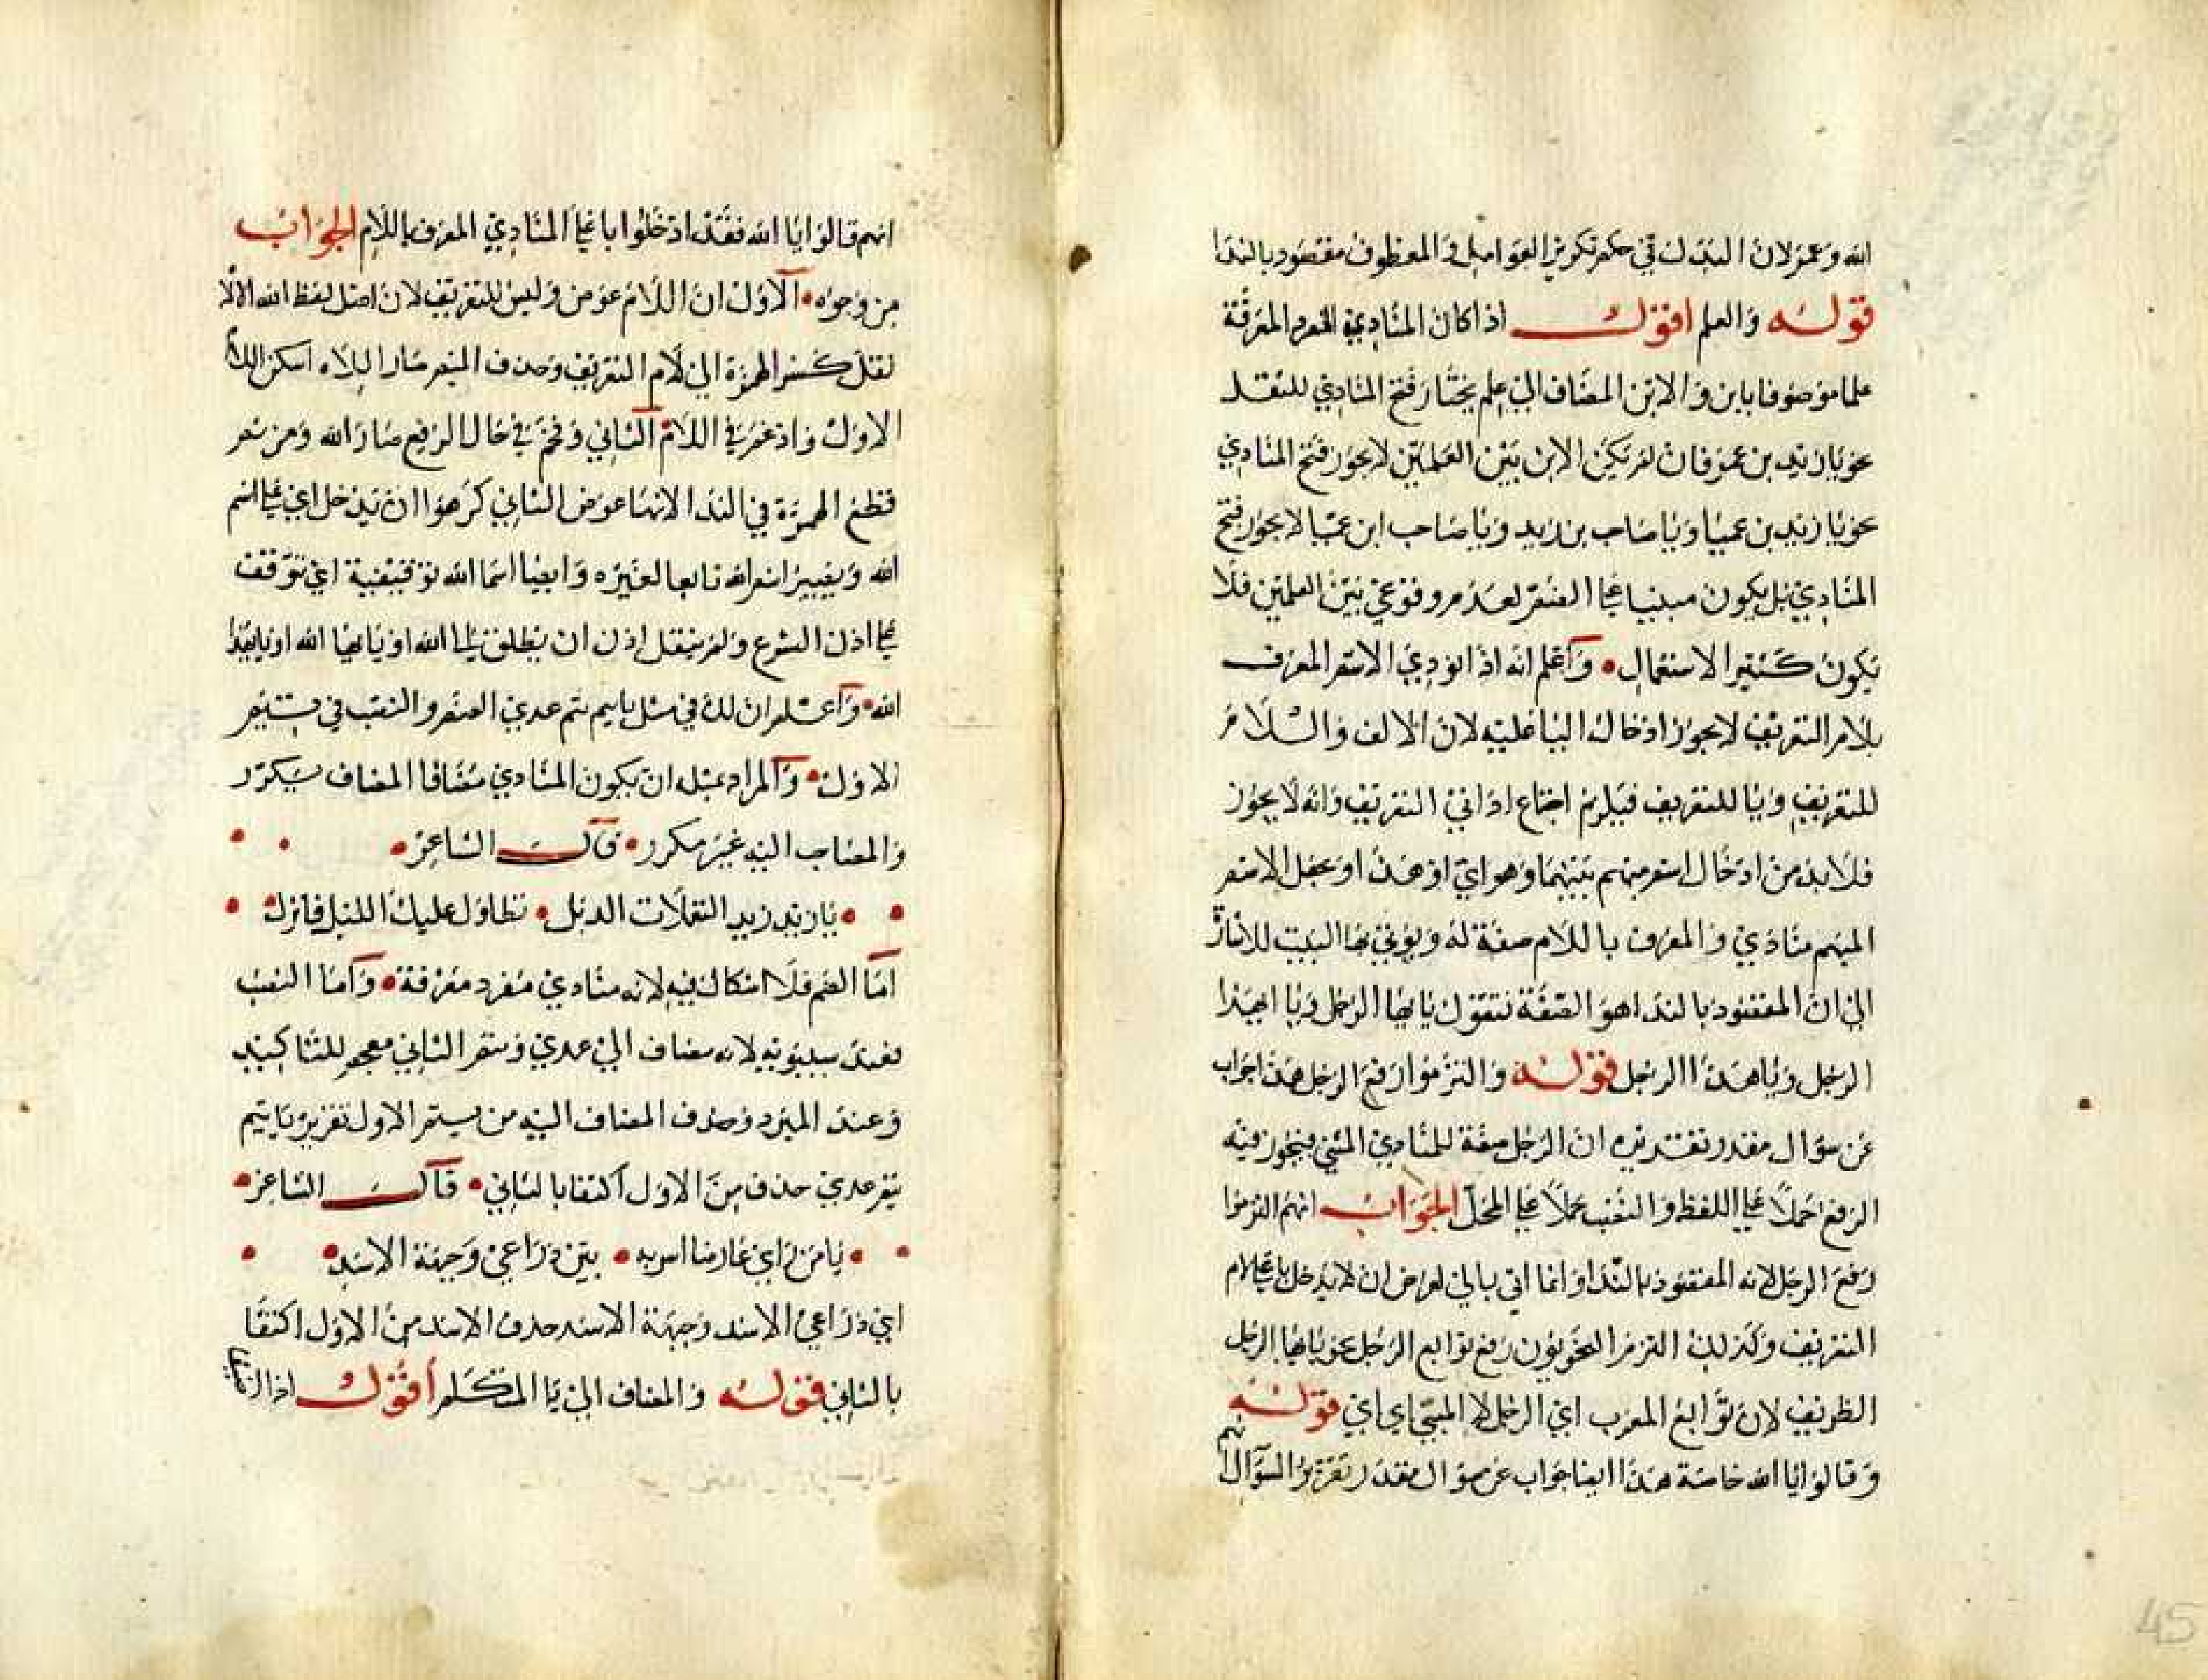 الله وعمر لان البدل في حكم تكرير العوامل والمعطوف مقصود بالندا
قوله والعلم اقول اذا كان المنادي المفرد المعرفة
علما موصوفا بابن والابن المضاف الي علم يختار فتح المنادي للثقل
نحو يا زيد بن عمرو فان لم يكن الابن بين العلمين لا يجوز فتح المنادي
نحو يا زيد بن عمنا ويا صاحب بن زيد ويا صاحب ابن عمنا لا يجوز فتح
المنادي بل يكون مبنيا علي الضم لعدم وقوعه بين العلمين فلا
يكون كثير الاستعمال واعلم انه اذا نودي الاسم المعرف
بلام التعريف لا يجوز ادخال اليا عليه لان الالف واللام
للتعريف ويا للتعريف فيلزم اجتماع اداتي التعريف وانه لا يجوز
فلا بد من ادخال اسم مبهم بينهما وهو اي او هذا او يجعل الاسم
المبهم منادي والمعرف باللام صفة له ويؤتي بها
الي ان المقصود بالندا هو الصفة نتقول يا يها الرجل ويا ايهذا
الرجل ويا هذا الرجل قوله والتزموا رفع الرجل هذا جواب
عن سؤال مقدر تقديره ان الرجل صفة للمنادي المبني فيجوز فيه
الرفع حملا علي اللفظ والنصب حملا علي المحل الجواب انهم التزموا
رفع الرجل لانه المقصود بالندا وانما اتي باي لغرض ان لا يدخل يا علي لام
التعريف وكذلك التزم النحويون رفع توابع الرجل نحو يا يها الرجل
الظريف لان توابع المعرب اي الرجل لا المبني اي اي قوله
وقالوا يا الله خاصة هذا ايضا جواب عن سؤال مقدر تقرير السؤال
انهم قالوا يا الله فقد ادخلوا يا علي المنادي المعرف باللام الجواب
من وجوه الاول ان اللام عوض وليس للتعريف لان اصل لفظ الله الالاه
نقل كسر الهمزة الي لام التعريف وحذف الهمزة صار اللاه اسكن اللام
الاول وادغم في اللام الثاني وفخم في حال الرفع صار الله ومن ثم
قطع الهمزة في الندا لانها عوض الثاني كرهوا ان يدخل اي علي اسم
الله ويصير اسم الله تابعا لغيره وايضا اسما الله توقيفية اي توقفت
علي اذن الشرع ولم ينقل اذن ان يطلق علي الله او يا يها الله او يا يهذا
الله واعلم ان لك في مثل يا تيم تيم عدي الضم والنصب في تيم
الاول والمراد بمثله ان يكون المنادي مضافا المضاف يتكرر
والمضاف اليه غير مكرر قال الشاعر
يا زيد زيد اليعملات الذبل تطاول عليك الليل فانزل
اما الضم فلا اشكال فيه لانه منادي مفرد معرفة واما النصب
فعند سيبويه لانه مضاف الي عدي وتيم الثاني مقحم للتاكيد
وعند المبرد وحذف المضاف اليه من تيم الاول تقريره يا تيم
تيم عدي حذف من الاول اكتفا بالثاني قال الشاعر
يا من راي عارضا اسر به بين ذراعي وجبهة الاسد
اي ذراعي الاسد وجبهة الاسد حذف الاسد من الاول اكتفا
بالثاني قوله والمضاف الي يا المتكلم اقول اذا
45